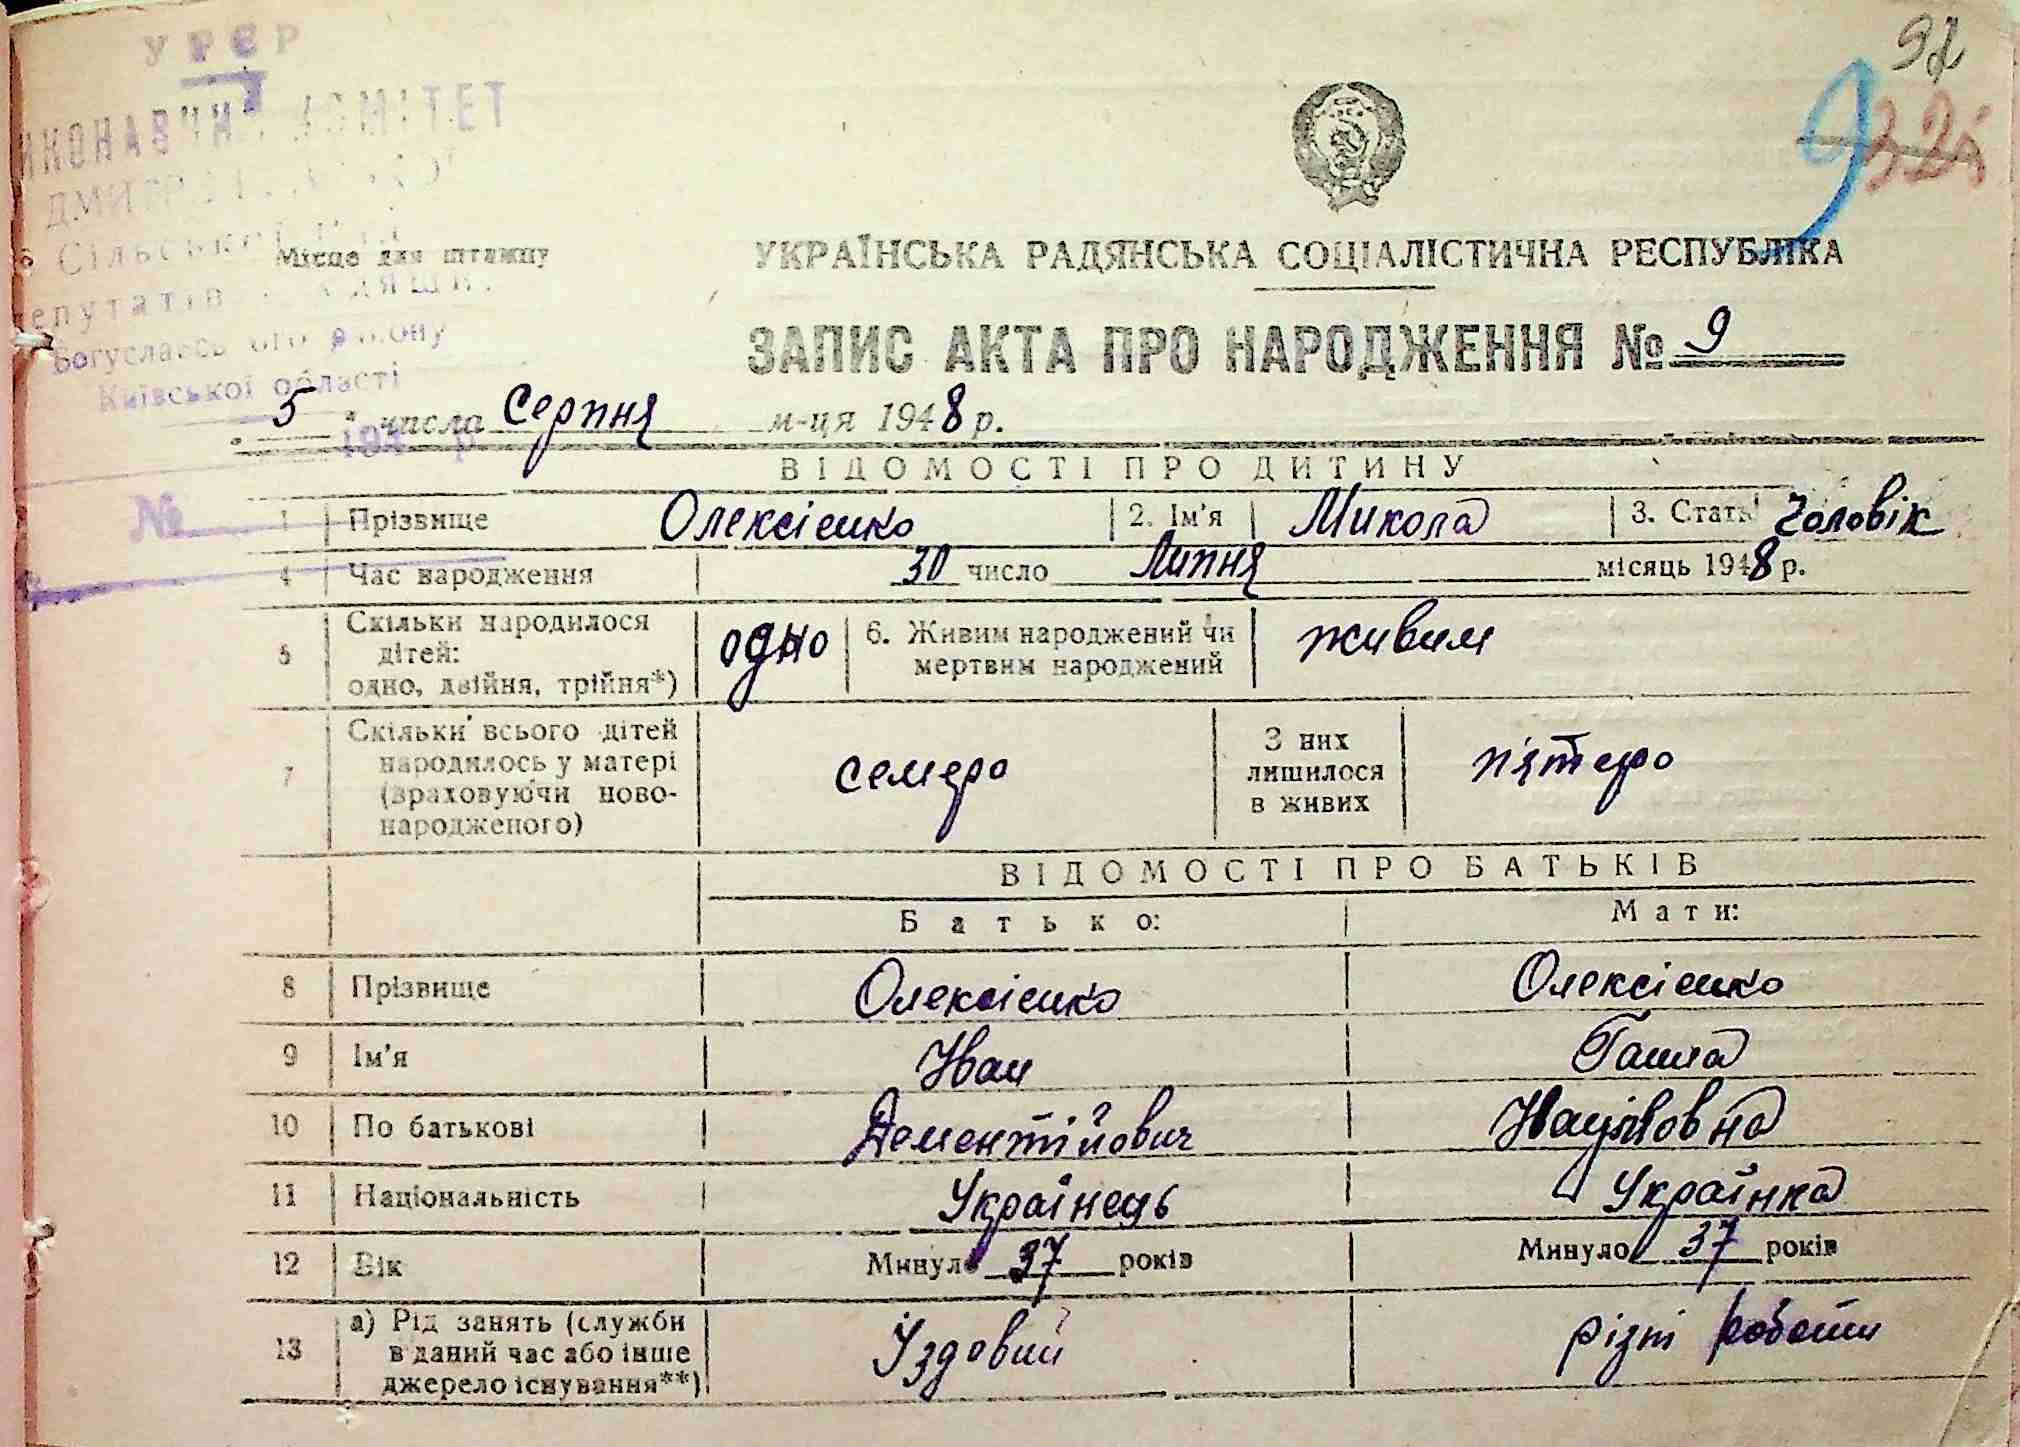 УРСР
ВИКОНАВЧИЙ КОМІТЕТ
Сільської Ради
Депутатів Трудящих
Богуславського району
Київської області
193 р
№
Місце для штампу
92
9
УКРАЇНСЬКА РАДЯНСЬКА СОЦІАЛІСТИЧНА РЕСПУБЛІКА
ЗАПИС АКТА ПРО НАРОДЖЕННЯ № 9
5 числа Серпня м-ця 1948 р.
ВІДОМОСТІ ПРО ДИТИНУ
1 Прізвище Олексієнко 2. Ім'я Микола 3. Стать Чоловік
4 Час народження 30 число Липня місяць 1948 р.
5 Скільки народилося
дітей:
одно, двійня, трійня*) одно 6. Живим народжений чи
мертвим народжений живим
7 Скільки всього дітей
народилось у матері
(враховуючи ново-
народженого) семеро З них
лишилося
в живих п'ятеро
ВІДОМОСТІ ПРО БАТЬКІВ
Батько: Мати:
8 Прізвище Олексієнко Олексієнко
9 Ім'я Іван Ганна
10 По батькові Дементійович
11 Національність Українець Українка
12 Вік Минуло 37 років Минуло 37 років
13 а) Рід занять (служби
в даний час або інше
джерело існування**) Їздовий різні роботи